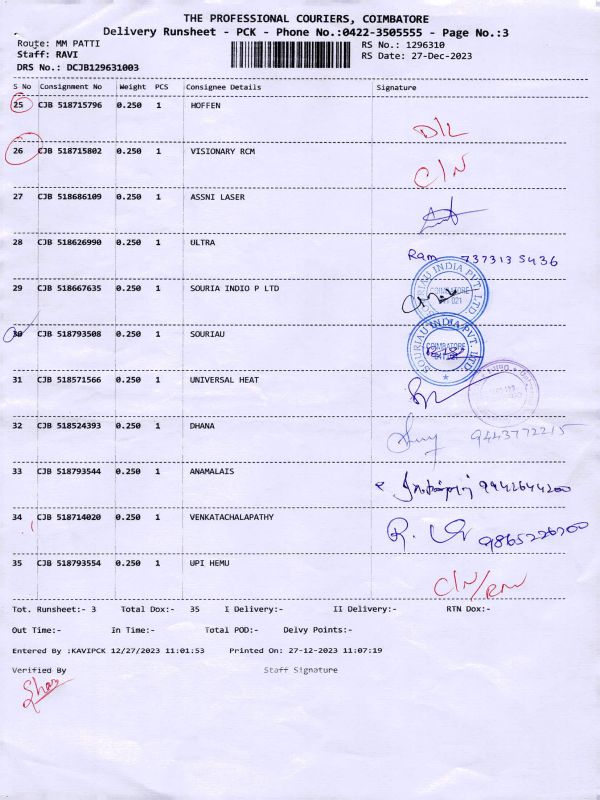 THE PROFESSIONAL COURIERS, COIMBATORE
Delivery Runsheet - PCK - Phone No.:0422-3505555 - Page No.:3
Route: MM PATTI RS No.: 1296310
Staff: RAVI RS Date: 27-Dec-2023
DRS No.: DCJB129631003
S No Consignment No Weight PCS Consignee Details Signature
25 CJB 518715796 0.250 1 HOFFEN
D/L
26 CJB 518715802 0.250 1 VISIONARY RCM
C/N
27 CJB 518686109 0.250 1 ASSNI LASER
28 CJB 518626990 0.250 1 ULTRA
Ram 737313 5436
29 CJB 518667635 0.250 1 SOURIA INDIO P LTD
SOURIAU INDIA PVT. LTD.
COIMBATORE
641 021
30 CJB 518793508 0.250 1 SOURIAU
SOURIAU INDIA PVT. LTD.
COIMBATORE
31 CJB 518571566 0.250 1 UNIVERSAL HEAT
32 CJB 518524393 0.250 1 DHANA
9443772215
33 CJB 518793544 0.250 1 ANAMALAIS
9942644200
34 CJB 518714020 0.250 1 VENKATACHALAPATHY
9865226200
35 CJB 518793554 0.250 1 UPI HEMU
C/N/RN
Tot. Runsheet:- 3 Total Dox:- 35 I Delivery:- II Delivery:- RTN Dox:-
Out Time:- In Time:- Total POD:- Delvy Points:-
Entered By :KAVIPCK 12/27/2023 11:01:53 Printed On: 27-12-2023 11:07:19
Verified By Staff Signature